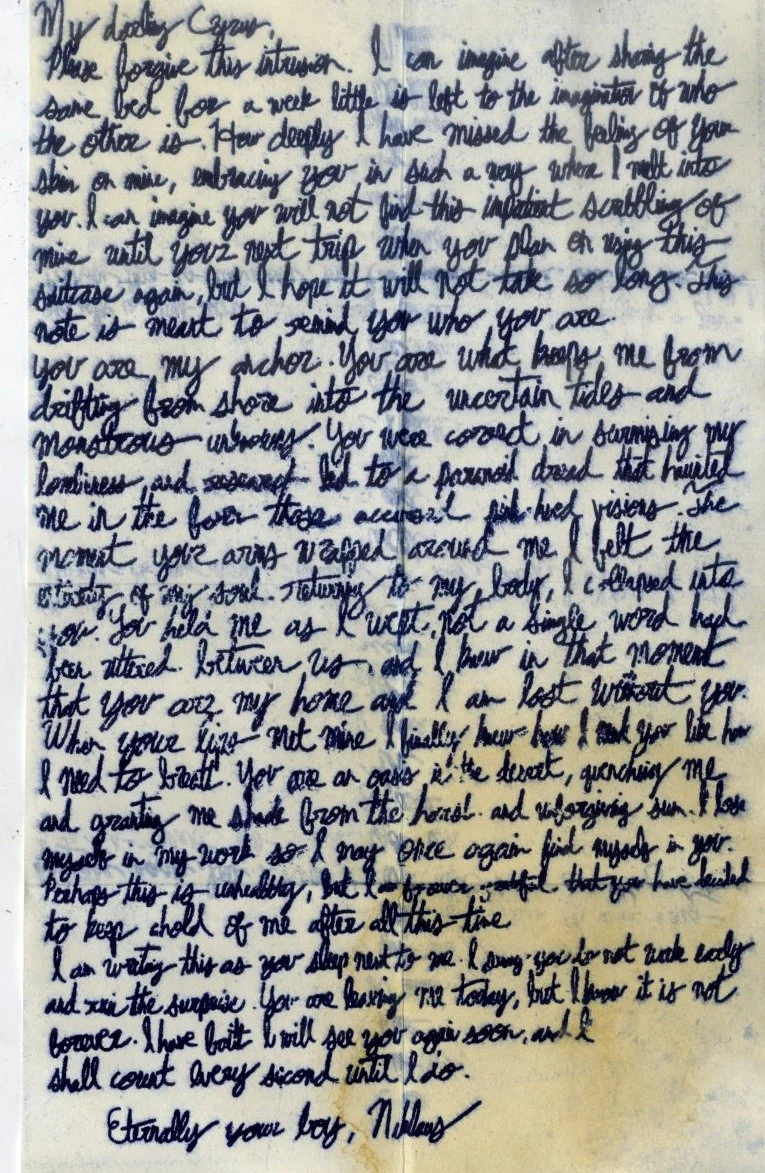 My darling Cyrus,
Please forgive this intrusion. I can imagine after sharing the
same bed for a week little is left to the imagination of who
the other is. How deeply I have missed the feeling of your
skin on mine, embracing you in such a way where I melt into
you. I can imagine you will not find this impatient scribbling of
mine until your next trip when you plan on using this
suitcase again, but I hope it will not take so long. This
note is meant to remind you who you are.
you are my anchor. You are what keeps me from
drifting from shore into the uncertain tides and
monstrous unknowns. You were correct in surmising my
loneliness and research led to a paranoid dread that haunted
me in the form those accursed visions. The
moment your arms wrapped around me I felt the
entirety of my soul returning to my body, I collapsed into
you. You held me as I wept, not a single word had
been uttered between us, and I knew in that moment
that you are my home and I am lost without you.
When your lips met mine I finally knew how I need you like how
I need to breath. You are an oasis in the desert, quenching me
and granting me shade from the harsh and unforgiving sun. I lose
myself in my work so I may once again find myself in you.
Perhaps this is unhealthy, but I grateful that you have decided
to keep ahold of me after all this time
I am writing this as you sleep next to me. I you do not wake early
and ruin the surprise. You are leaving me today, but I know it is not
forever. I have faith I will see you again soon, and I
shall count every second until I do.
Eternally your boy, Niklaus